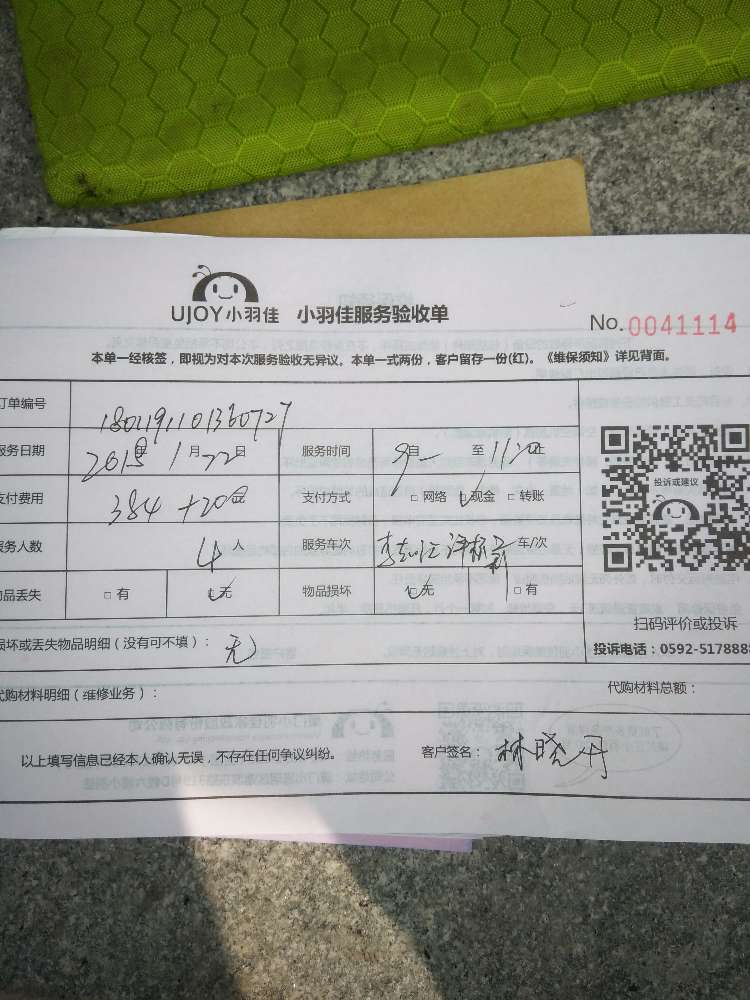 UJOY小羽佳 小羽佳服务验收单
No.0041114
本单一经核签，即视为对本次服务验收无异议。本单一式两份，客户留存一份(红)。《维保须知》详见背面。
订单编号 1801191101360727
服务日期 2018年1月22日 服务时间 9 自 至 11:20止
支付费用 384+20元 支付方式 □网络 ☑现金 □转账
服务人数 4人 服务车次 车/次
物品丢失 □有 ☑无 物品损坏 ☑无 □有
投诉或建议
扫码评价或投诉
投诉电话：0592-5178888
损坏或丢失物品明细（没有可不填）： 无
代购材料明细（维修业务）： 代购材料总额：
以上填写信息已经本人确认无误，不存在任何争议纠纷。 客户签名：林晓丹